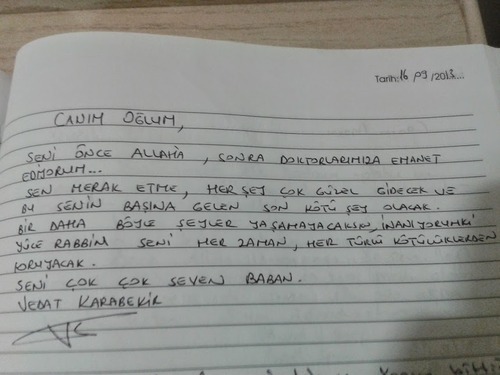 Tarih: 16/09/2013...
CANIM OĞLUM,
SENİ ÖNCE ALLAHA, SONRA DOKTORLARIMIZA EMANET
EDİYORUM...
SEN MERAK ETME, HERŞEY ÇOK GÜZEL GİDECEK VE
BU SENİN BAŞINA GELEN SON KÖTÜ ŞEY OLACAK.
BİR DAHA BÖYLE ŞEYLER YAŞAMAYACAKSIN, İNANIYORUMKİ
YÜCE RABBİM SENİ HER ZAMAN, HER TÜRLÜ KÖTÜLÜKLERDEN
KORUYACAK.
SENİ ÇOK ÇOK SEVEN BABAN.
VEDAT KARABEKİR